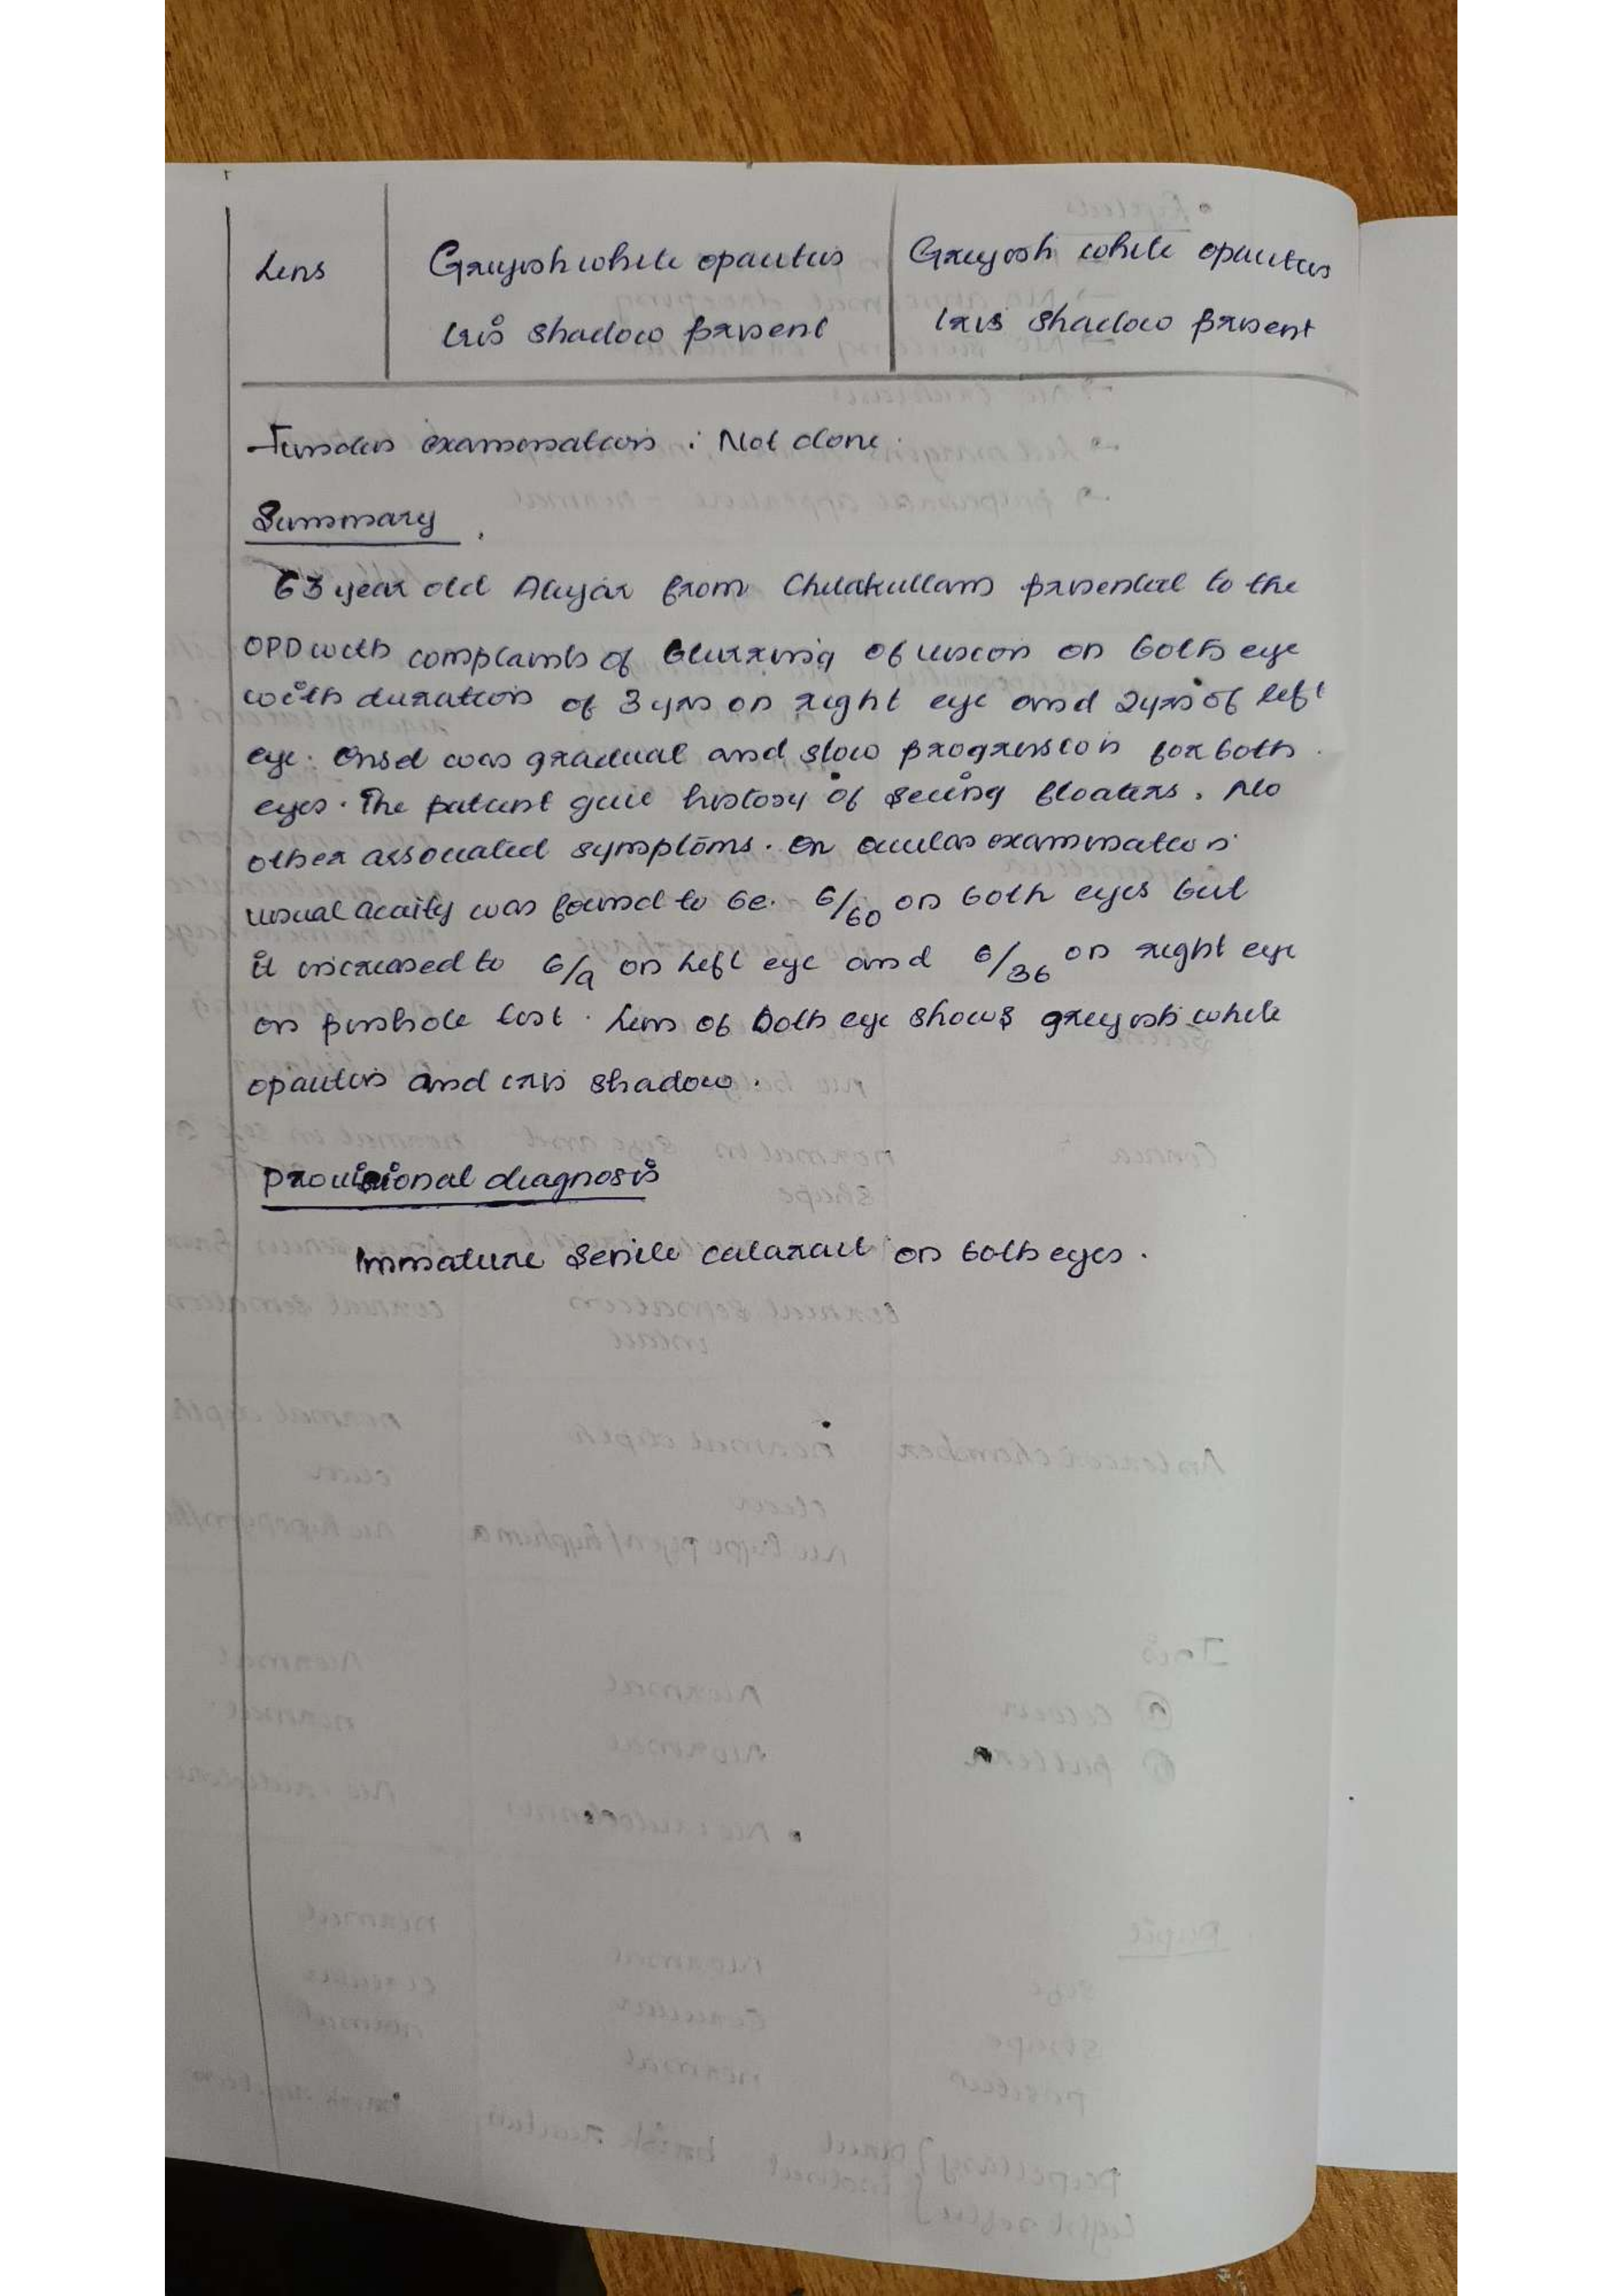 Lens
Greyish white opacities
Iris shadow present
Greyish white opacities
Iris shadow present
Fundus examination : Not done.
Summary
63 year old Aliyar from Chelakullam presented to the
OPD with complaints of blurring of vision on both eye
with duration of 3 yrs on right eye and 2 yrs of left
eye. Onset was gradual and slow progression for both
eyes. The patient gave history of seeing floaters. No
other associated symptoms. On ocular examination
visual acuity was found to be 6/60 on both eyes but
it increased to 6/9 on left eye and 6/36 on right eye
on pinhole test. Lens of both eye shows greyish white
opacities and iris shadow.
Provisional diagnosis
Immature Senile cataract on both eyes.